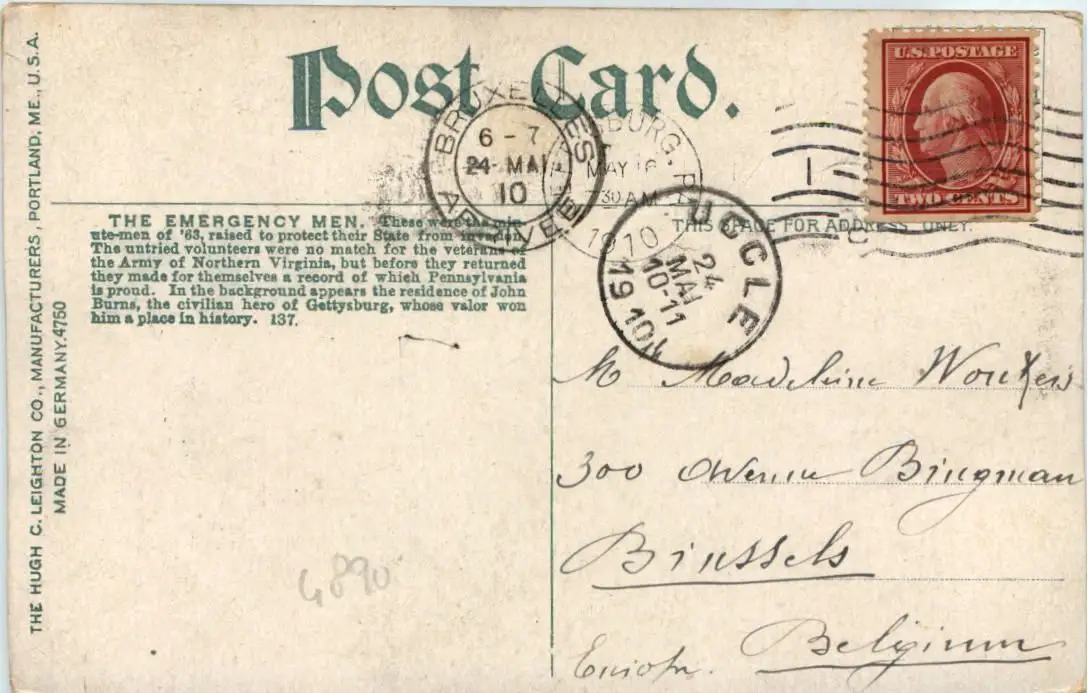 Post Card.
U.S. POSTAGE
TWO CENTS
BRUXELLES
6 - 7
24 MAI
10
BURG. P
MAY 16
30 AM
1910
UCCLE
24
MAI
10-11
1910
THIS SPACE FOR ADDRESS ONLY.
THE EMERGENCY MEN. These were the min-
ute-men of '63, raised to protect their State from invasion.
The untried volunteers were no match for the veterans of
the Army of Northern Virginia, but before they returned
they made for themselves a record of which Pennsylvania
is proud. In the background appears the residence of John
Burns, the civilian hero of Gettysburg, whose valor won
him a place in history. 137.
THE HUGH C. LEIGHTON CO., MANUFACTURERS, PORTLAND, ME., U.S.A.
MADE IN GERMANY. 4750
M Madeleine Wouters
300 Avenue Bingman
Brussels
Belgium
Europe.
4890